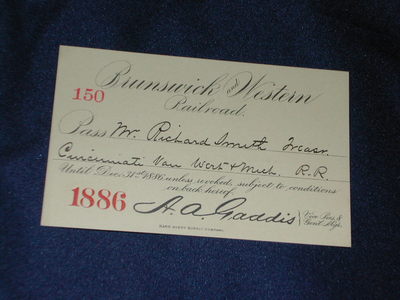 Brunswick and Western
150
Railroad.
Pass Mr. Richard Smith Treasr.
Cincinnati Van Wert & Mich. R.R.
Until Dec. 31st 1886 unless revoked, subject to conditions
on back hereof.
1886
A. A. Gaddis
Vice Pres. &
Genl. Mgr.
RAND AVERY SUPPLY COMPANY.